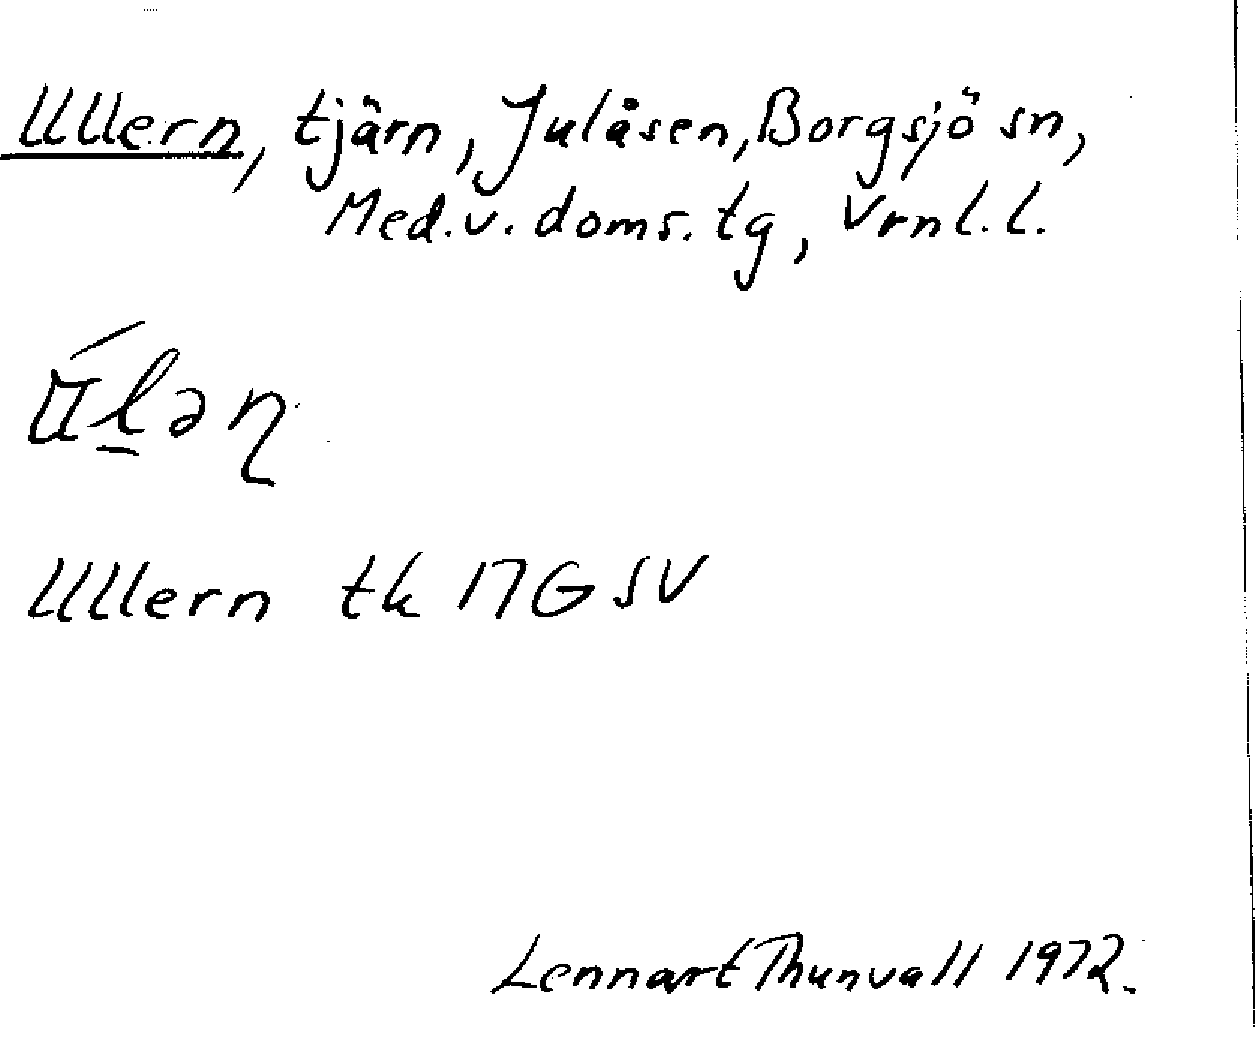 Ullern, tjärn, Julåsen, Borgsjö sn,
Med. v. doms. tg, Vrnl. l.
Ullern tk 17G SV
Lennart Thunvall 1972.